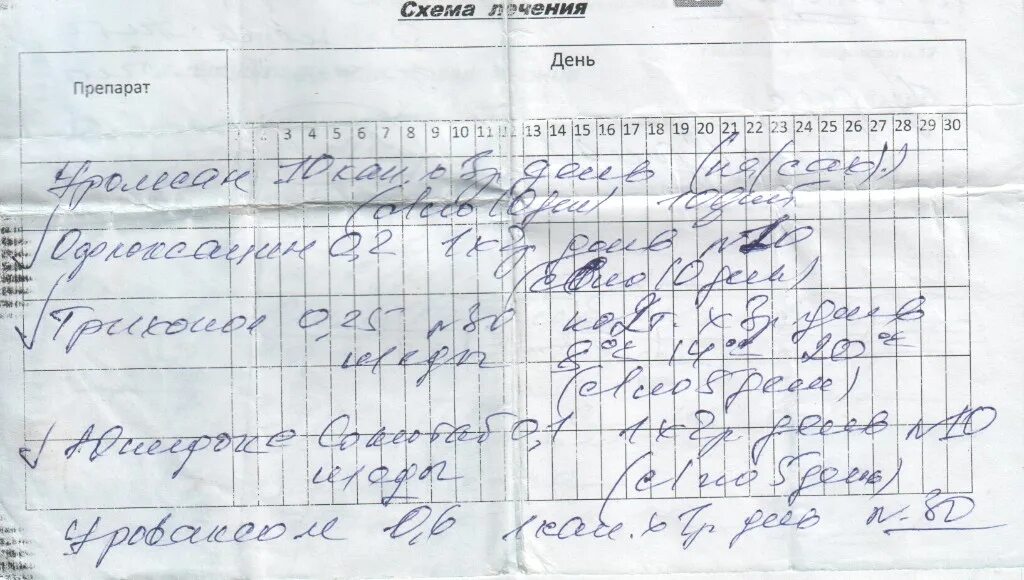 Схема лечения
Препарат
День
3 4 5 6 7 8 9 10 11 12 13 14 15 16 17 18 19 20 21 22 23 24 25 26 27 28 29 30
Уролесан 10 кап. х 3р день (на/сах.)
(с 1 по 10 день)
Офлоксацин 0,2 1х2р день №20
(с по 10 день)
Трихопол 0,25 №30 по 2т. х 3р день
8⁰⁰ 14⁰⁰ 20⁰⁰
(с 1 по 5 день)
Юнидокс Солютаб 0,1 1х2р день №10
(с 1 по 5 день)
Уроваксом 0,6 1 кап. х 1р день №30